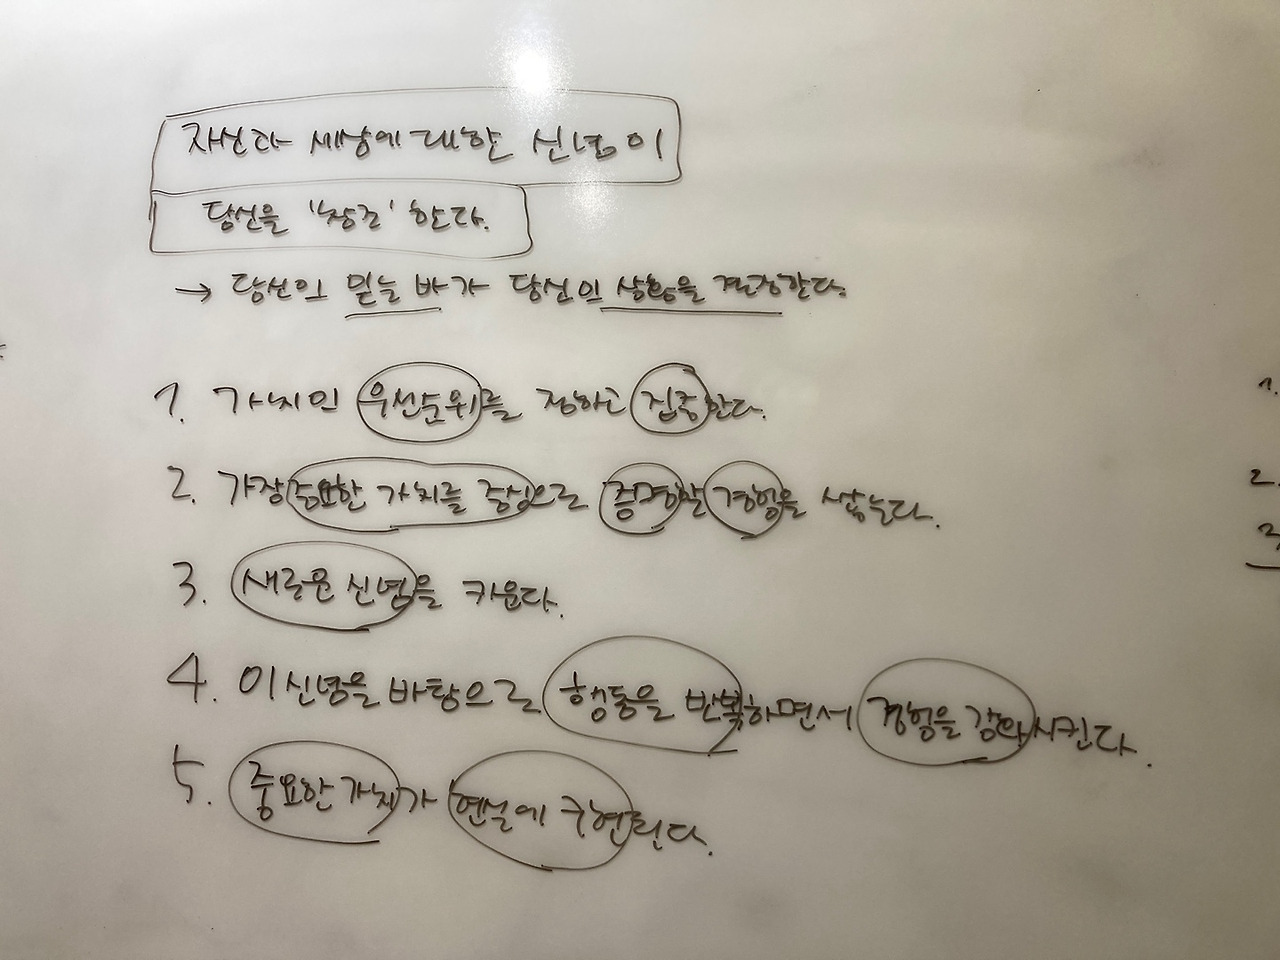 자신과 세상에 대한 신념이
당신을 "창조"한다.
→ 당신의 믿는 바가 당신의 상황을 결정한다.
1. 가치의 우선순위를 정하고 집중한다.
2. 가장 중요한 가치를 중심으로 증명할 경험을 쌓는다.
3. 새로운 신념을 키운다.
4. 이 신념을 바탕으로 행동을 반복하면서 경험을 강화시킨다.
5. 중요한 가치가 현실에 구현된다.
1.
2.
3.